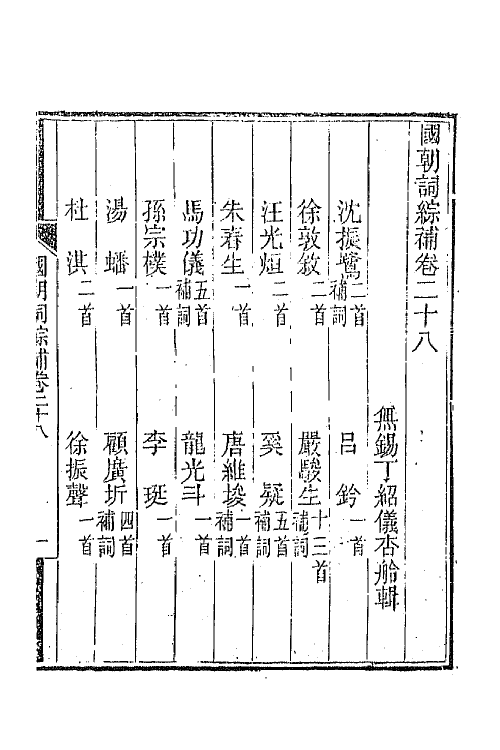 國朝詞綜補卷二十八
無錫丁紹儀杏舲輯
沈振鷺二首補詞 呂鈐一首
徐敦敘二首 嚴駿生十三首補詞
汪光烜二首 奚疑五首補詞
朱春生一首 唐維埈一首補詞
馮功儀五首補詞 龍光斗一首
孫宗樸一首 李珽一首
湯蟠一首 顧廣圻四首補詞
杜淇二首 徐振聲一首
國朝詞綜補卷二十八 一